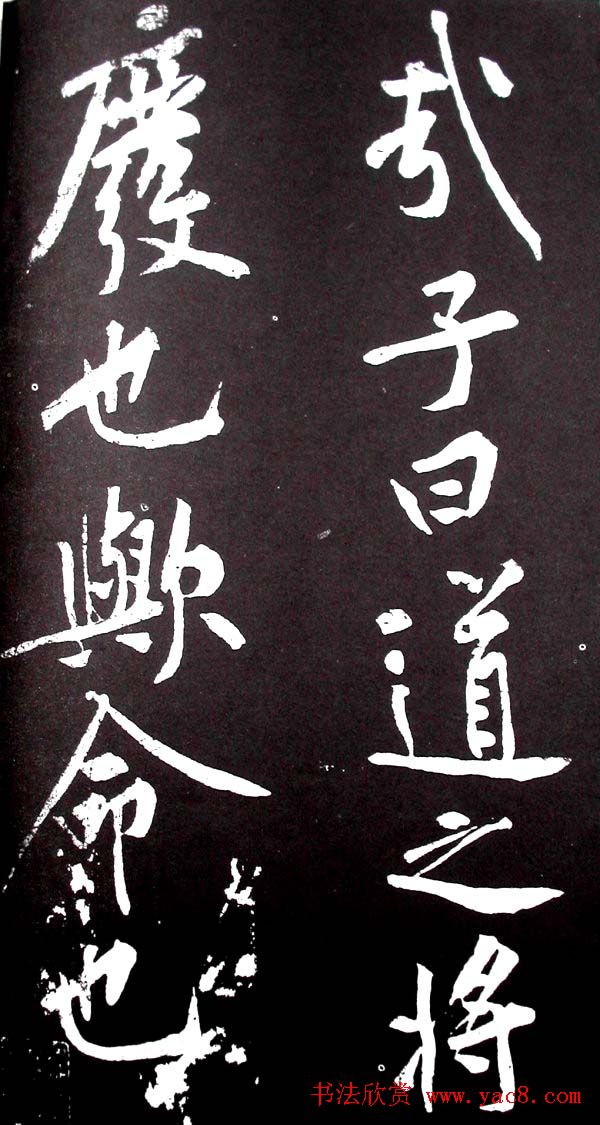 哉子曰道之将
廢也歟命也
书法欣赏 www.yac8.com